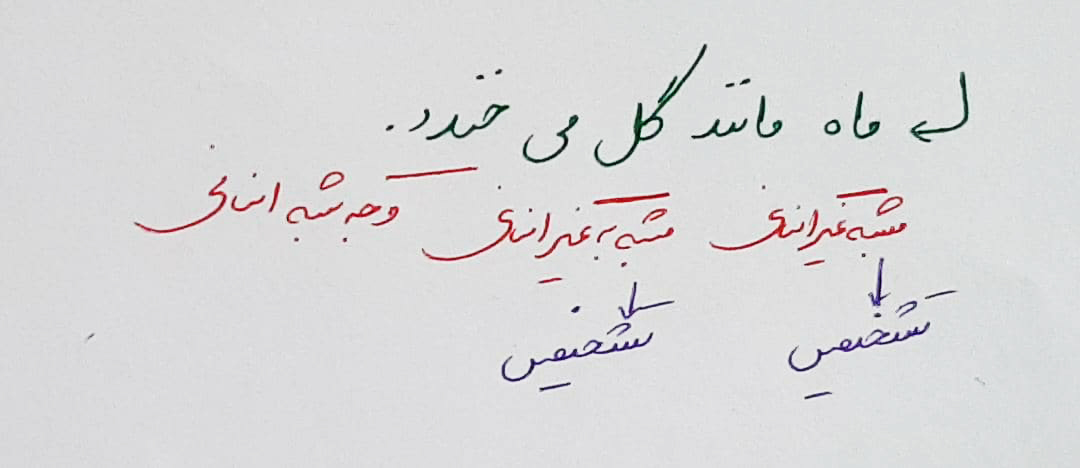 ماه مانند گل می خندد.
مشبه غیرانسانی مشبه به غیرانسانی وجه شبه انسانی
تشخیص تشخیص